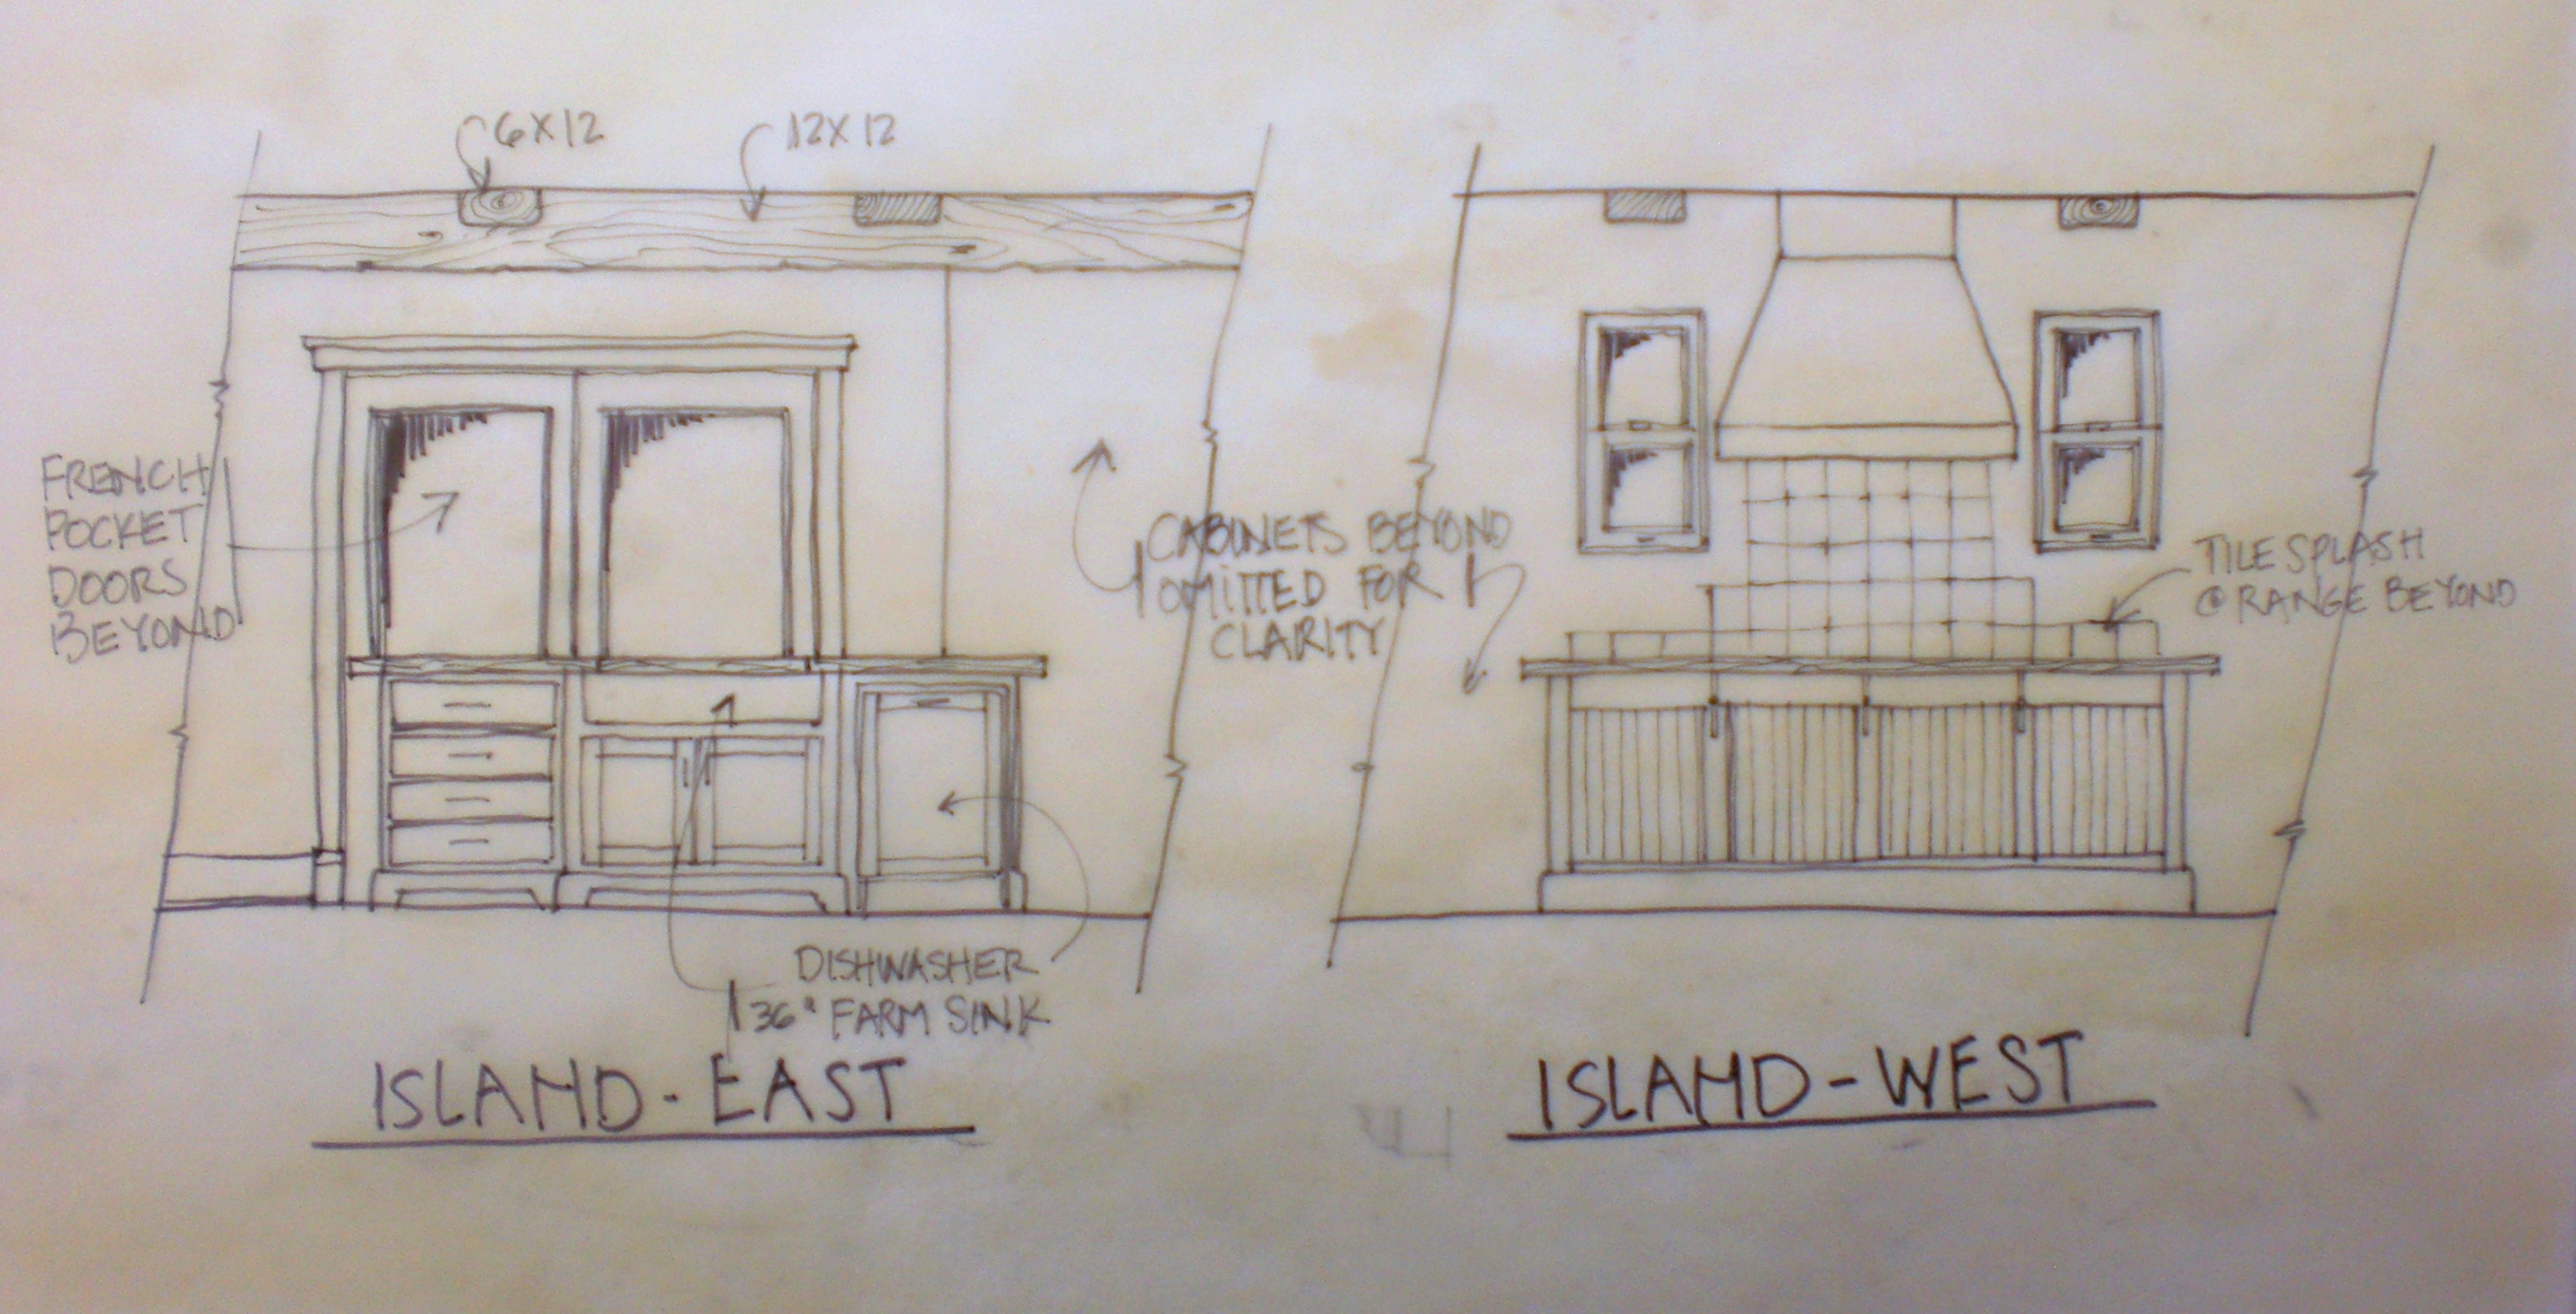 6X12
12X12
FRENCH
POCKET
DOORS
BEYOND
CABINETS BEYOND
OMITTED FOR
CLARITY
TILE SPLASH
@ RANGE BEYOND
DISHWASHER
36" FARM SINK
ISLAND - EAST
ISLAND - WEST